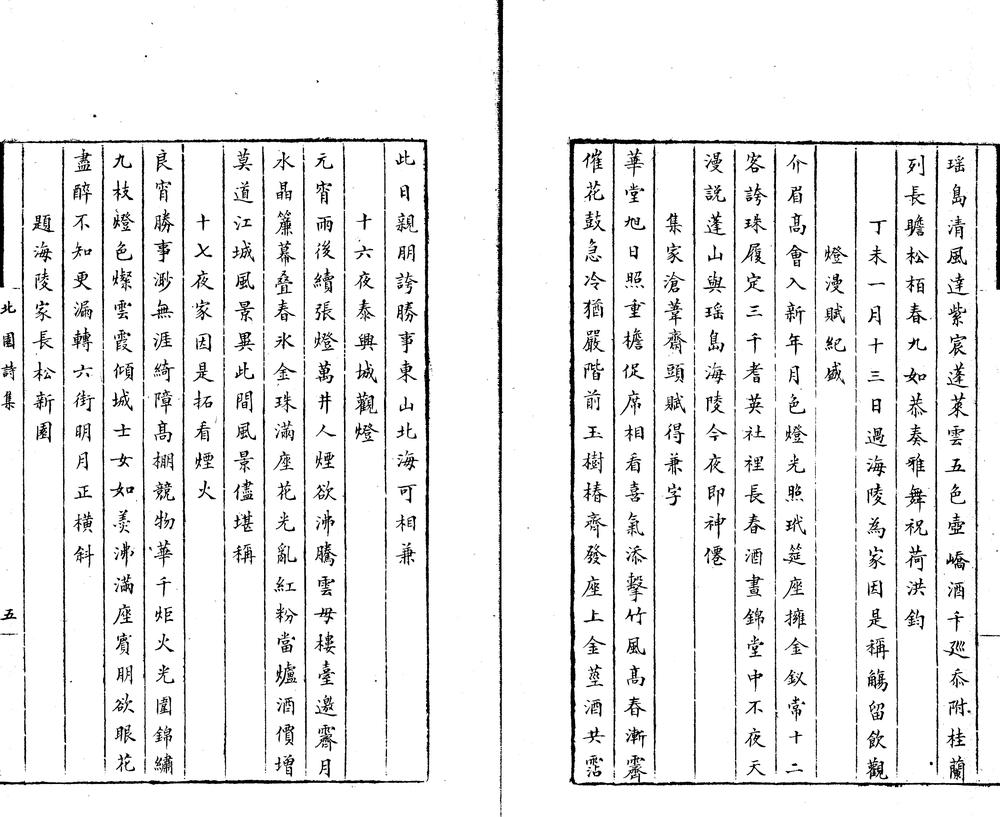 瑶島清風達紫宸蓬萊雲五色壺嶠酒千廵忝附桂蘭
列長瞻松栢春九如恭奏雅舞祝荷洪鈞
丁未一月十三日過海陵為家因是稱觴留飲觀
燈漫賦紀盛
介眉髙會入新年月色燈光照玳筵座擁金釵常十二
客誇珠履定三千耆英社裡長春酒晝錦堂中不夜天
漫説蓬山與瑶島海陵今夜即神僊
集家滄葦齋頭賦得兼字
華堂旭日照重檐促席相看喜氣添擊竹風髙春漸霽
催花鼓急冷猶嚴階前玉樹椿齊發座上金莖酒共霑
此日親朋誇勝事東山北海可相兼
十六夜泰興城觀燈
元宵雨後續張燈萬井人煙欲沸騰雲母樓臺邀霽月
水晶簾幕叠春氷金珠滿座花光亂紅粉當爐酒價增
莫道江城風景異此間風景儘堪稱
十七夜家因是拓看煙火
良宵勝事渺無涯綺障髙棚競物華千炬火光圍錦繡
九枝燈色燦雲霞傾城士女如羮沸滿座賓朋欲眼花
盡醉不知更漏轉六街明月正横斜
題海陵家長松新園
北園詩集
五